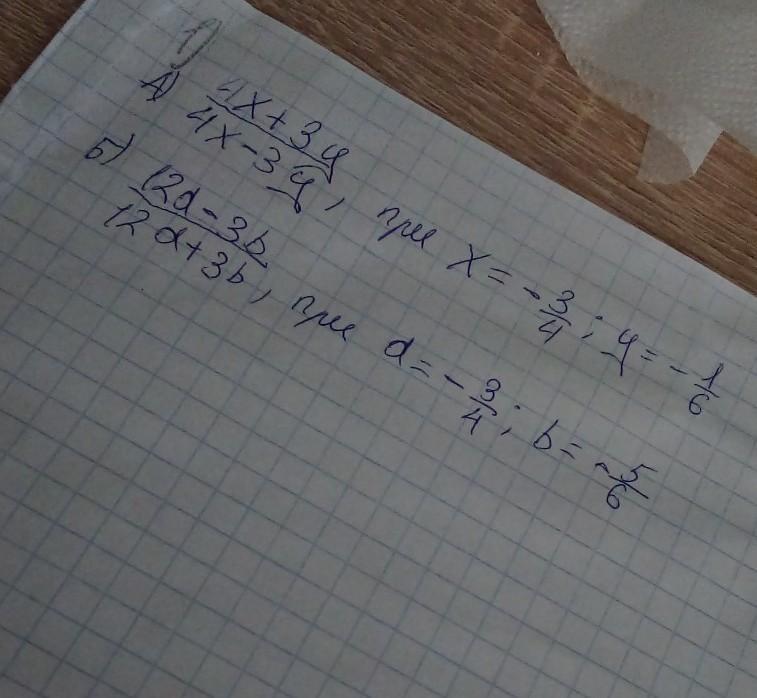 1)
А) (4x+3y)/(4x-3y), при x = -3/4; y = -1/6
Б) (12a-3b)/(12a+3b), при a = -3/4; b = -5/6